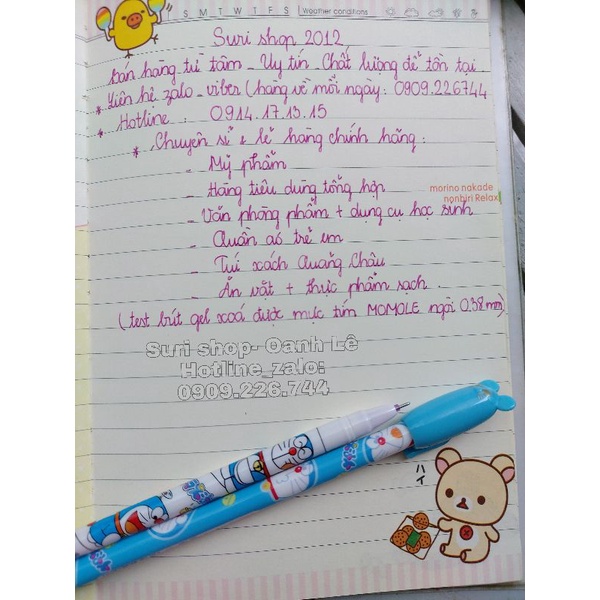 S M T W T F S Weather conditions
Suri shop 2012
Bán hàng từ tâm - Uy tín - Chất lượng để tồn tại
* Liên hệ zalo - viber (hàng về mỗi ngày: 0909.226744
* Hotline : 0914.17.13.15
* Chuyên sỉ & lẻ hàng chính hãng:
- Mỹ phẩm
- Hàng tiêu dùng tổng hợp
morino nakade
nonbiri Relax
- Văn phòng phẩm + dụng cụ học sinh
- Quần áo trẻ em
- Túi xách Quảng Châu
- Ăn vặt + thực phẩm sạch.
(test bút gel xoá được mực tím MOMOLE ngòi 0.38mm)
Suri shop- Oanh Lê
Hotline_zalo:
0909.226.744
ハイ